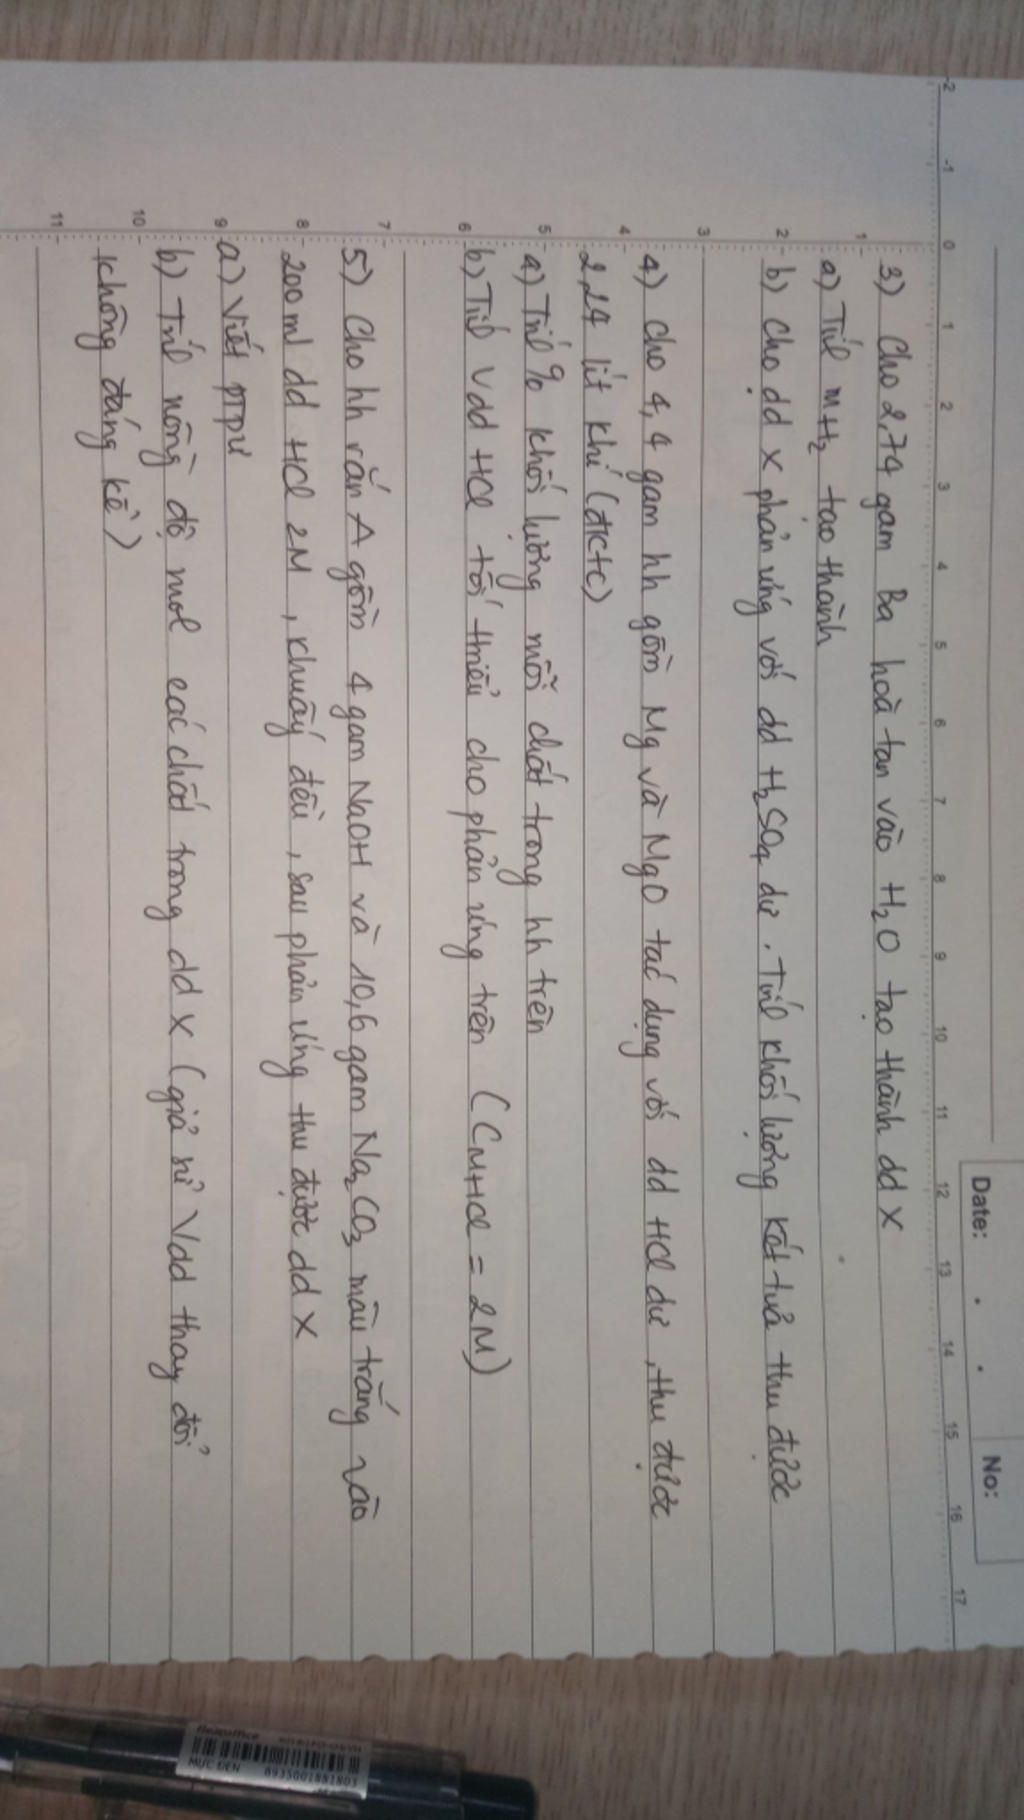 Date: No:
-2 -1 0 1 2 3 4 5 6 7 8 9 10 11 12 13 14 15 16 17
1
2
3
4
5
6
7
8
9
10
11
3) Cho 2,74 gam Ba hoà tan vào H₂O tạo thành dd X
a) Tính mH₂ tạo thành
b) Cho dd X phản ứng với dd H₂SO₄ dư. Tính khối lượng kết tủa thu được
4) Cho 4,4 gam hh gồm Mg và MgO tác dụng với dd HCl dư, thu được
2,24 lít khí (đktc)
a) Tính % khối lượng mỗi chất trong hh trên
b) Tính Vdd HCl tối thiểu cho phản ứng trên (CMHCl = 2M)
5) Cho hh rắn A gồm 4 gam NaOH và 10,6 gam Na₂CO₃ màu trắng vào
200ml dd HCl 2M, khuấy đều, sau phản ứng thu được dd X
a) Viết ptpư
b) Tính nồng độ mol các chất trong dd X (giả sử Vdd thay đổi
không đáng kể)
flexoffice
MỰC ĐEN 8935001881803